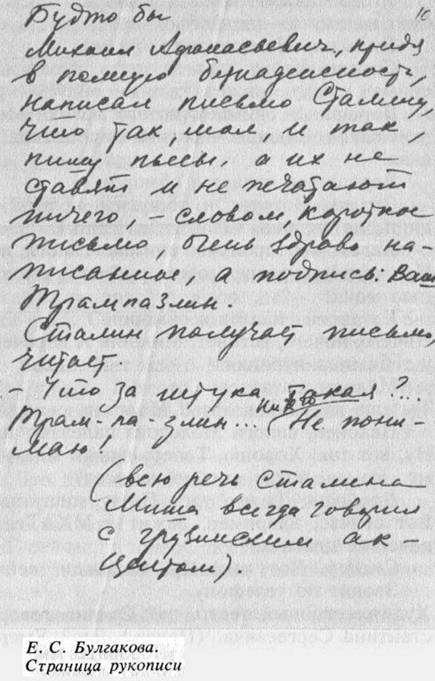 16
Будто бы
Михаил Афанасьевич, придя
в полную безнадежность,
написал письмо Сталину,
что так, мол, и так,
пишу пьесы, а их не
ставят и не печатают
ничего, – словом, короткое
письмо очень здраво на-
писанное, а подпись: Ваш
Трампазлин.
Сталин получает письмо,
читает.
– Что за штука такая?...
Трам-па-злин... Не пони-
маю,
(всю речь Сталина
Миша всегда говорил
с грузинским ак-
центом)
Е. С. Булгакова.
Страница рукописи